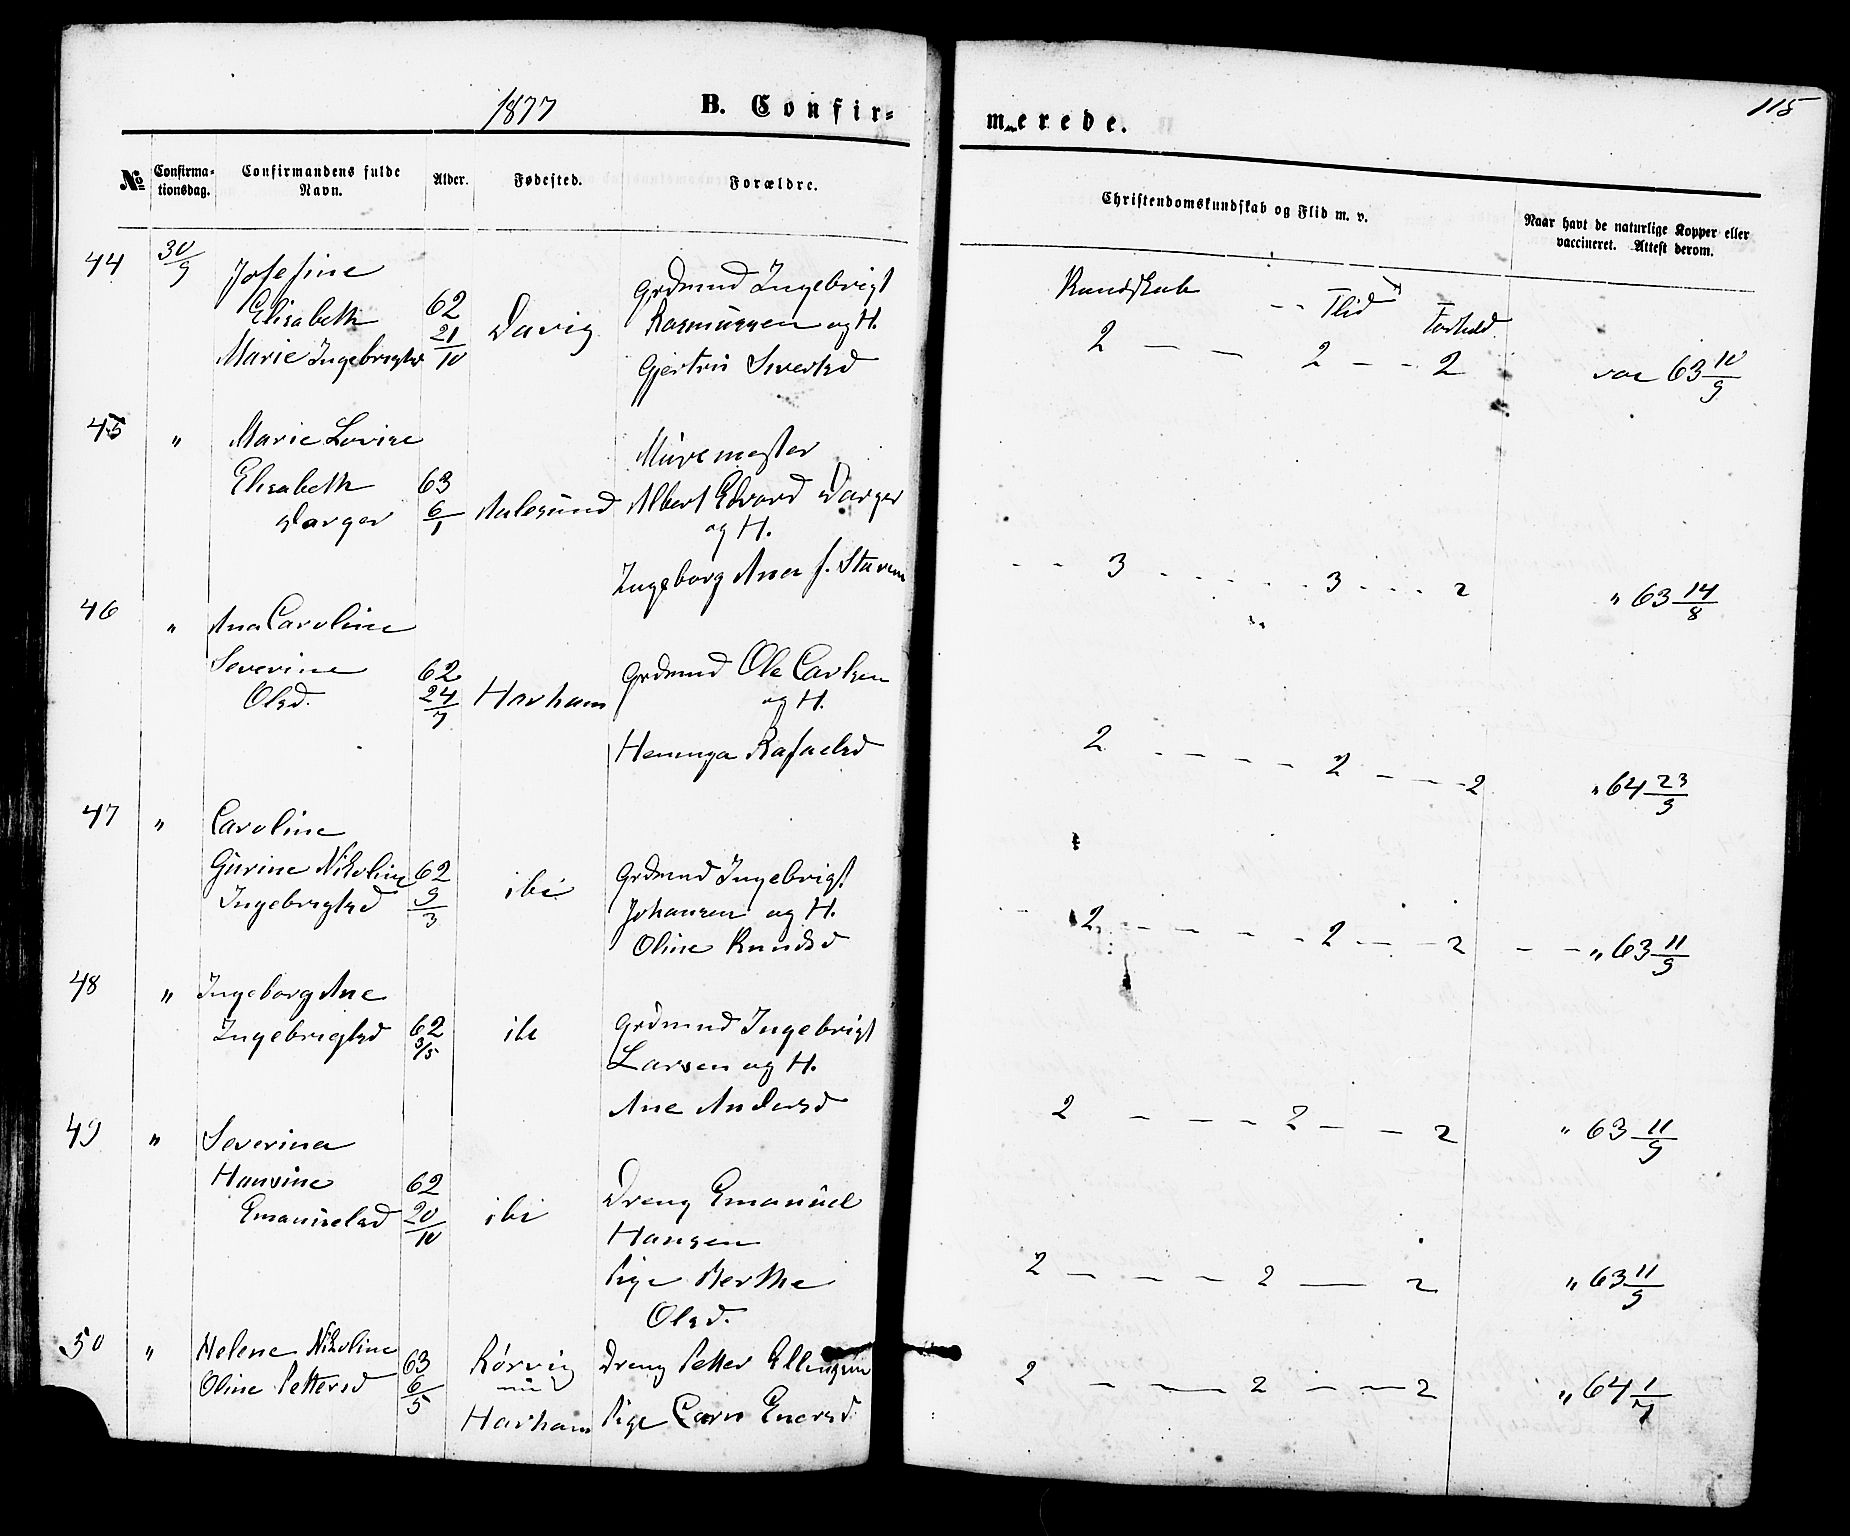 1877 B. Confir=
merede. 115
№ Confirma=tionsdag. Confirmandens fulde Navn. Alder. Fødested. Forældre. Christendomskundskab og Flid m. v. Naar havt de naturlige Kopper eller vaccineret. Attest derom.
44 30/9 Josefine Grdmnd Ingebrigt Kundskab -- Flid Forhold
Elisabeth 62 Davig Rasmussen og H.
Marie Ingebrigtsd 21/10 Gjertru Sivertsd 2 — — 2 — - 2 vac 63 10/9
45 " Marie Lovise Muremester
Elisabeth 63 Aalesund Albert Edvard Darger
Darger 6/1 og H.
Ingeborg Ana f. Stavem - - 3 - - - - - 3 - - - 2 " 63 14/8
46 " Ana Caroline
Severine 62 Harham Grdmnd Ole Carlsen
Olsd. 24/7 og H.
Heninga Rafaelsd 2 - — - — - 2 — - — - 2 " 64 23/9
47 " Caroline
Gurine Nikoline 62 ibi Grdmnd Ingebrigt
Ingebrigtsd 9/3 Johansen og H.
Oline Knudsd 2 - — - — - 2 — - — 2 — — " 63 11/9
48 " Ingeborg Ane
Ingebrigtsd 62 ibi Grdmnd Ingebrigt
3/5 Larsen og H.
Ane Andersd 2 — — — — 2 — — 2 " 63 11/9
49 " Severina
Hansine 62 ibi Dreng Emanuel
Emanuelsd 20/10 Hansen
Pige Berthe
Olsd. 2 — — — — 2 — 2 " 63 11/9
50 " Helene Nikoline 63 Rørvig Dreng Petter Ellingsen
Oline Pettersd 6/5 nu
Harham Pige Carn Enersd. 2 — — 2 — — 2 " 64 1/7